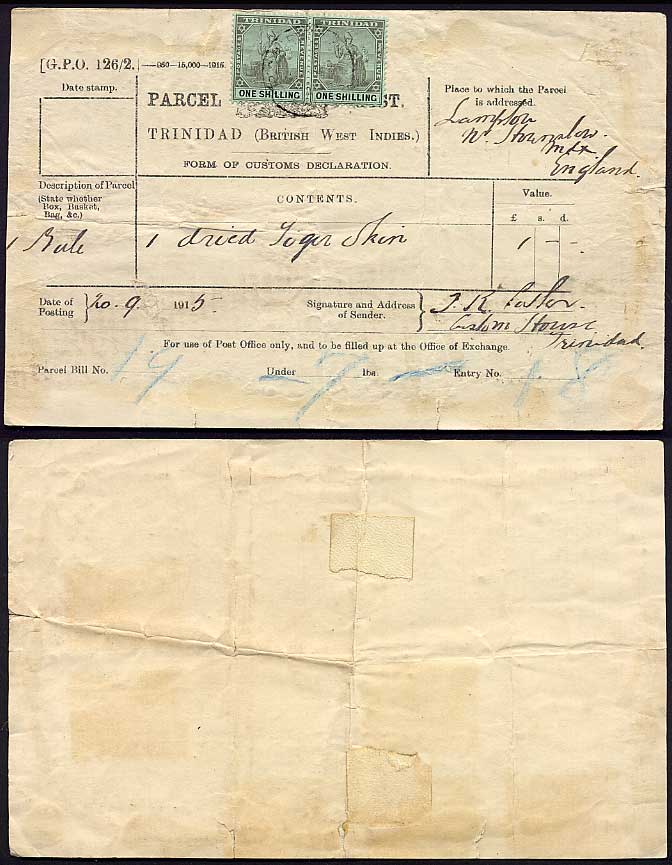 TRINIDAD TRINIDAD
ONE SHILLING ONE SHILLING
[G.P.O. 126/2.]—960—15,000—1915.
Date stamp.
PARCEL ST.
TRINIDAD (BRITISH WEST INDIES.)
FORM OF CUSTOMS DECLARATION.
Place to which the Parcel
is addressed.
Lampton
Nr. Hounslow.
Mdx
England.
Description of Parcel
(State whether
Box, Basket,
Bag, &c.)
CONTENTS.
Value.
£ s. d.
1 Bale
1 dried Tiger Skin
1 - -
Date of
Posting
20. 9. 1915.
Signature and Address
of Sender.
Custom House
Trinidad.
For use of Post Office only, and to be filled up at the Office of Exchange.
Parcel Bill No. 19 Under 7 lbs. Entry No. 18